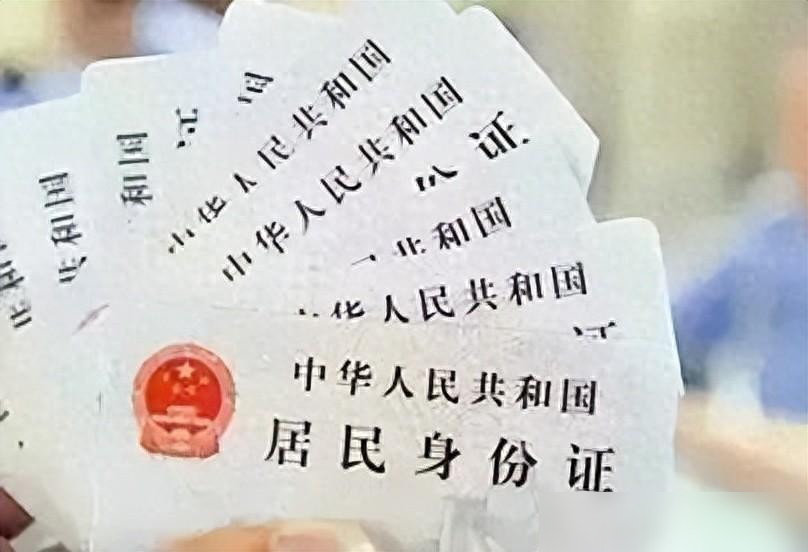 和国
共和国
和国
国
证
中华人民共和国
中华人民共和国
证
份
共和国
华人民共和国
证
中华人民共和国
居民身份证